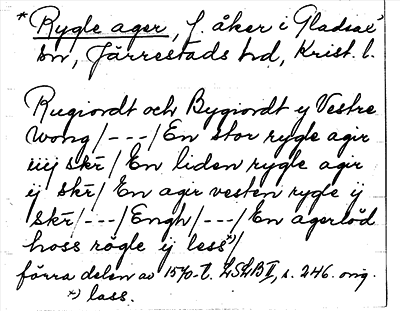 * Rygle ager, f. åker i Gladsax
sn, Järrestads hd, Krist. l.
Rugiordt och Bygiordt y Vestre
Wong /---/ En stor rygle agir
iiij skr̄ / En liden rygle agir
ij skr̄ / En agir vesten rygle ij
skr̄ /---/ Engh /---/ En agerlöd
hoss rögle ij less*) /
förra delen av 1570-t. LSLB II, s. 246. orig.
*) lass.